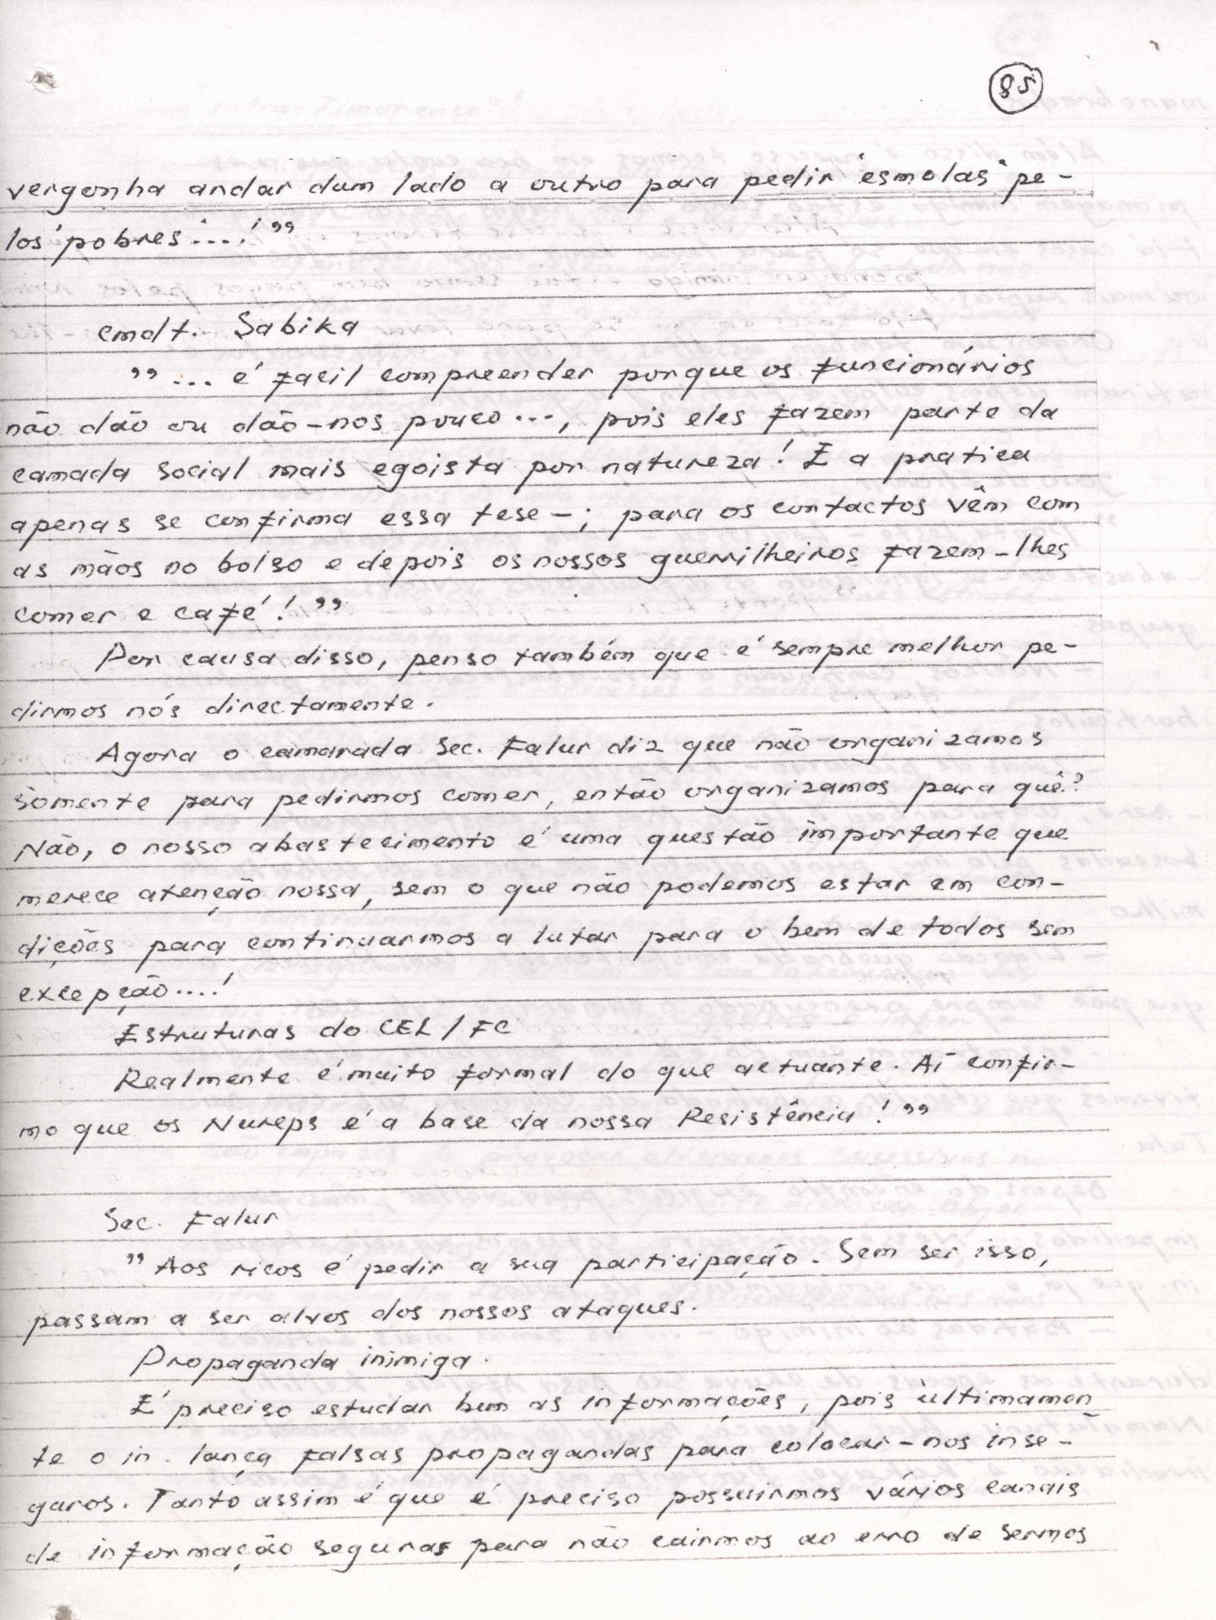 85
vergonha andar dum lado a outro para pedir "esmolas" pe-
los "pobres"...!”
cmdt. Sabika
”... é facil compreender porque os funcionários
não dão ou dão-nos pouco..., pois eles fazem parte da
camada social mais egoista por natureza! E a pratica
apenas se confirma essa tese-; para os contactos vêm com
as mãos no bolso e depois os nossos guerrilheiros fazem-lhes
comer e café!”
Por causa disso, penso também que é sempre melhor pe-
dirmos nós directamente.
Agora o camarada Sec. Falur diz que não organizamos
sòmente para pedirmos comer, então organizamos para quê?
Não, o nosso abastecimento é uma questão importante que
merece atenção nossa, sem o que não podemos estar em con-
dições para continuarmos a lutar para o bem de todos sem
excepção....!
Estruturas do CEL/FC
Realmente é muito formal do que actuante. Aí confir-
mo que os Nureps é a base da nossa Resistência!”
Sec. Falur
”Aos ricos é pedir a sua participação. Sem ser isso,
passam a ser alvos dos nossos ataques.
Propaganda inimiga.
É preciso estudar bem as informações, pois ùltimamen
te o in. lança falsas propagandas para colocar-nos inse-
guros. Tanto assim é que é preciso possuirmos vários canais
de informação seguras para não cairmos ao erro de sermos